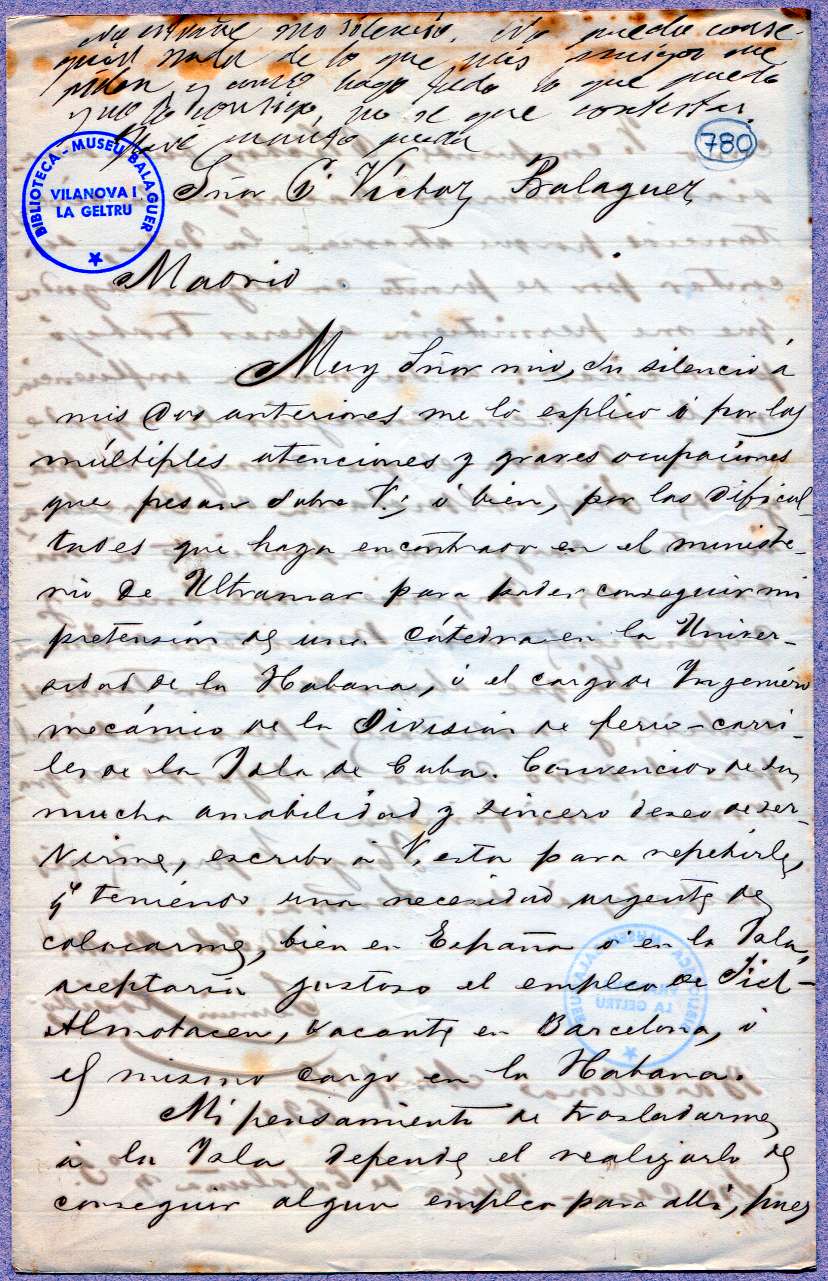 No extrañe mi silencio. No puedo conse-
guir nada de lo que mis amigos me
piden, y como hago todo lo que puedo
y no lo consigo, no sé que contestar.
Haré cuanto pueda
780
BIBLIOTECA - MUSEU BALAGUER
VILANOVA I
LA GELTRU
Señor Victor Balaguer
Madrid
Muy Señor mio, su silencio á
mis dos anteriores me lo esplico ó por las
múltiples atenciones y graves ocupaciones
que pesan sobre V.; ó bien, por las dificul-
tades que haya encontrado en el ministe-
rio de Ultramar para poder conseguir mi
pretensión de una cátedra en la Univer-
sidad de la Habana, ó el cargo de Yngeniero
mecánico de la División de ferro-carri-
les de la Ysla de Cuba. Convencido de su
mucha amabilidad y sincero deseo de ser-
virme, escribo á V. esta para repetirle,
q teniendo una necesidad urgente de
colocarme, bien en España ó en la Ysla,
aceptaria gustoso el empleo de Fiel-
Almotacen, vacante en Barcelona, ó
el mismo cargo en la Habana.
Mi pensamiento de trasladarme
á la Ysla depende el realizarlo de
conseguir algun empleo para allí, pues